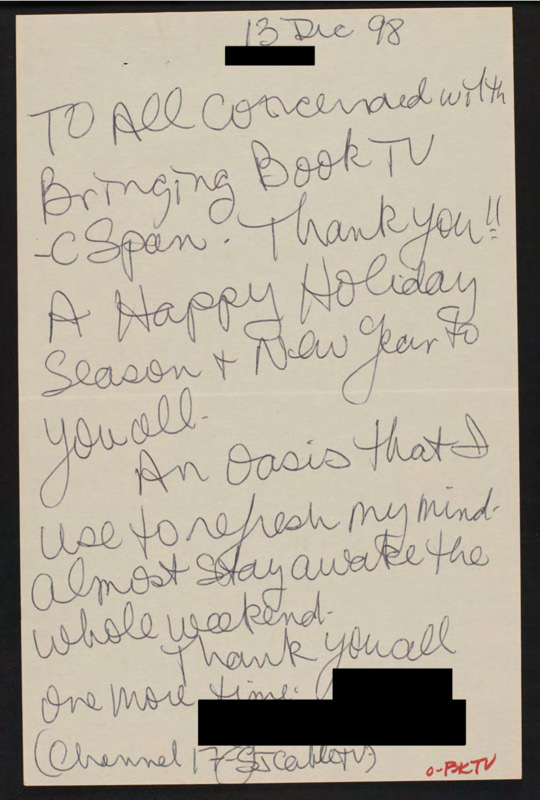 13 Dec 98
To All Concerned with
Bringing Book TV
-C Span. Thank you!!
A Happy Holiday
Season + New Year to
you all.
An Oasis that I
use to refresh my mind.
almost stay awake the
whole weekend.
Thank you all
one more time.
(Channel 17- Cable TV)
o-BKTV